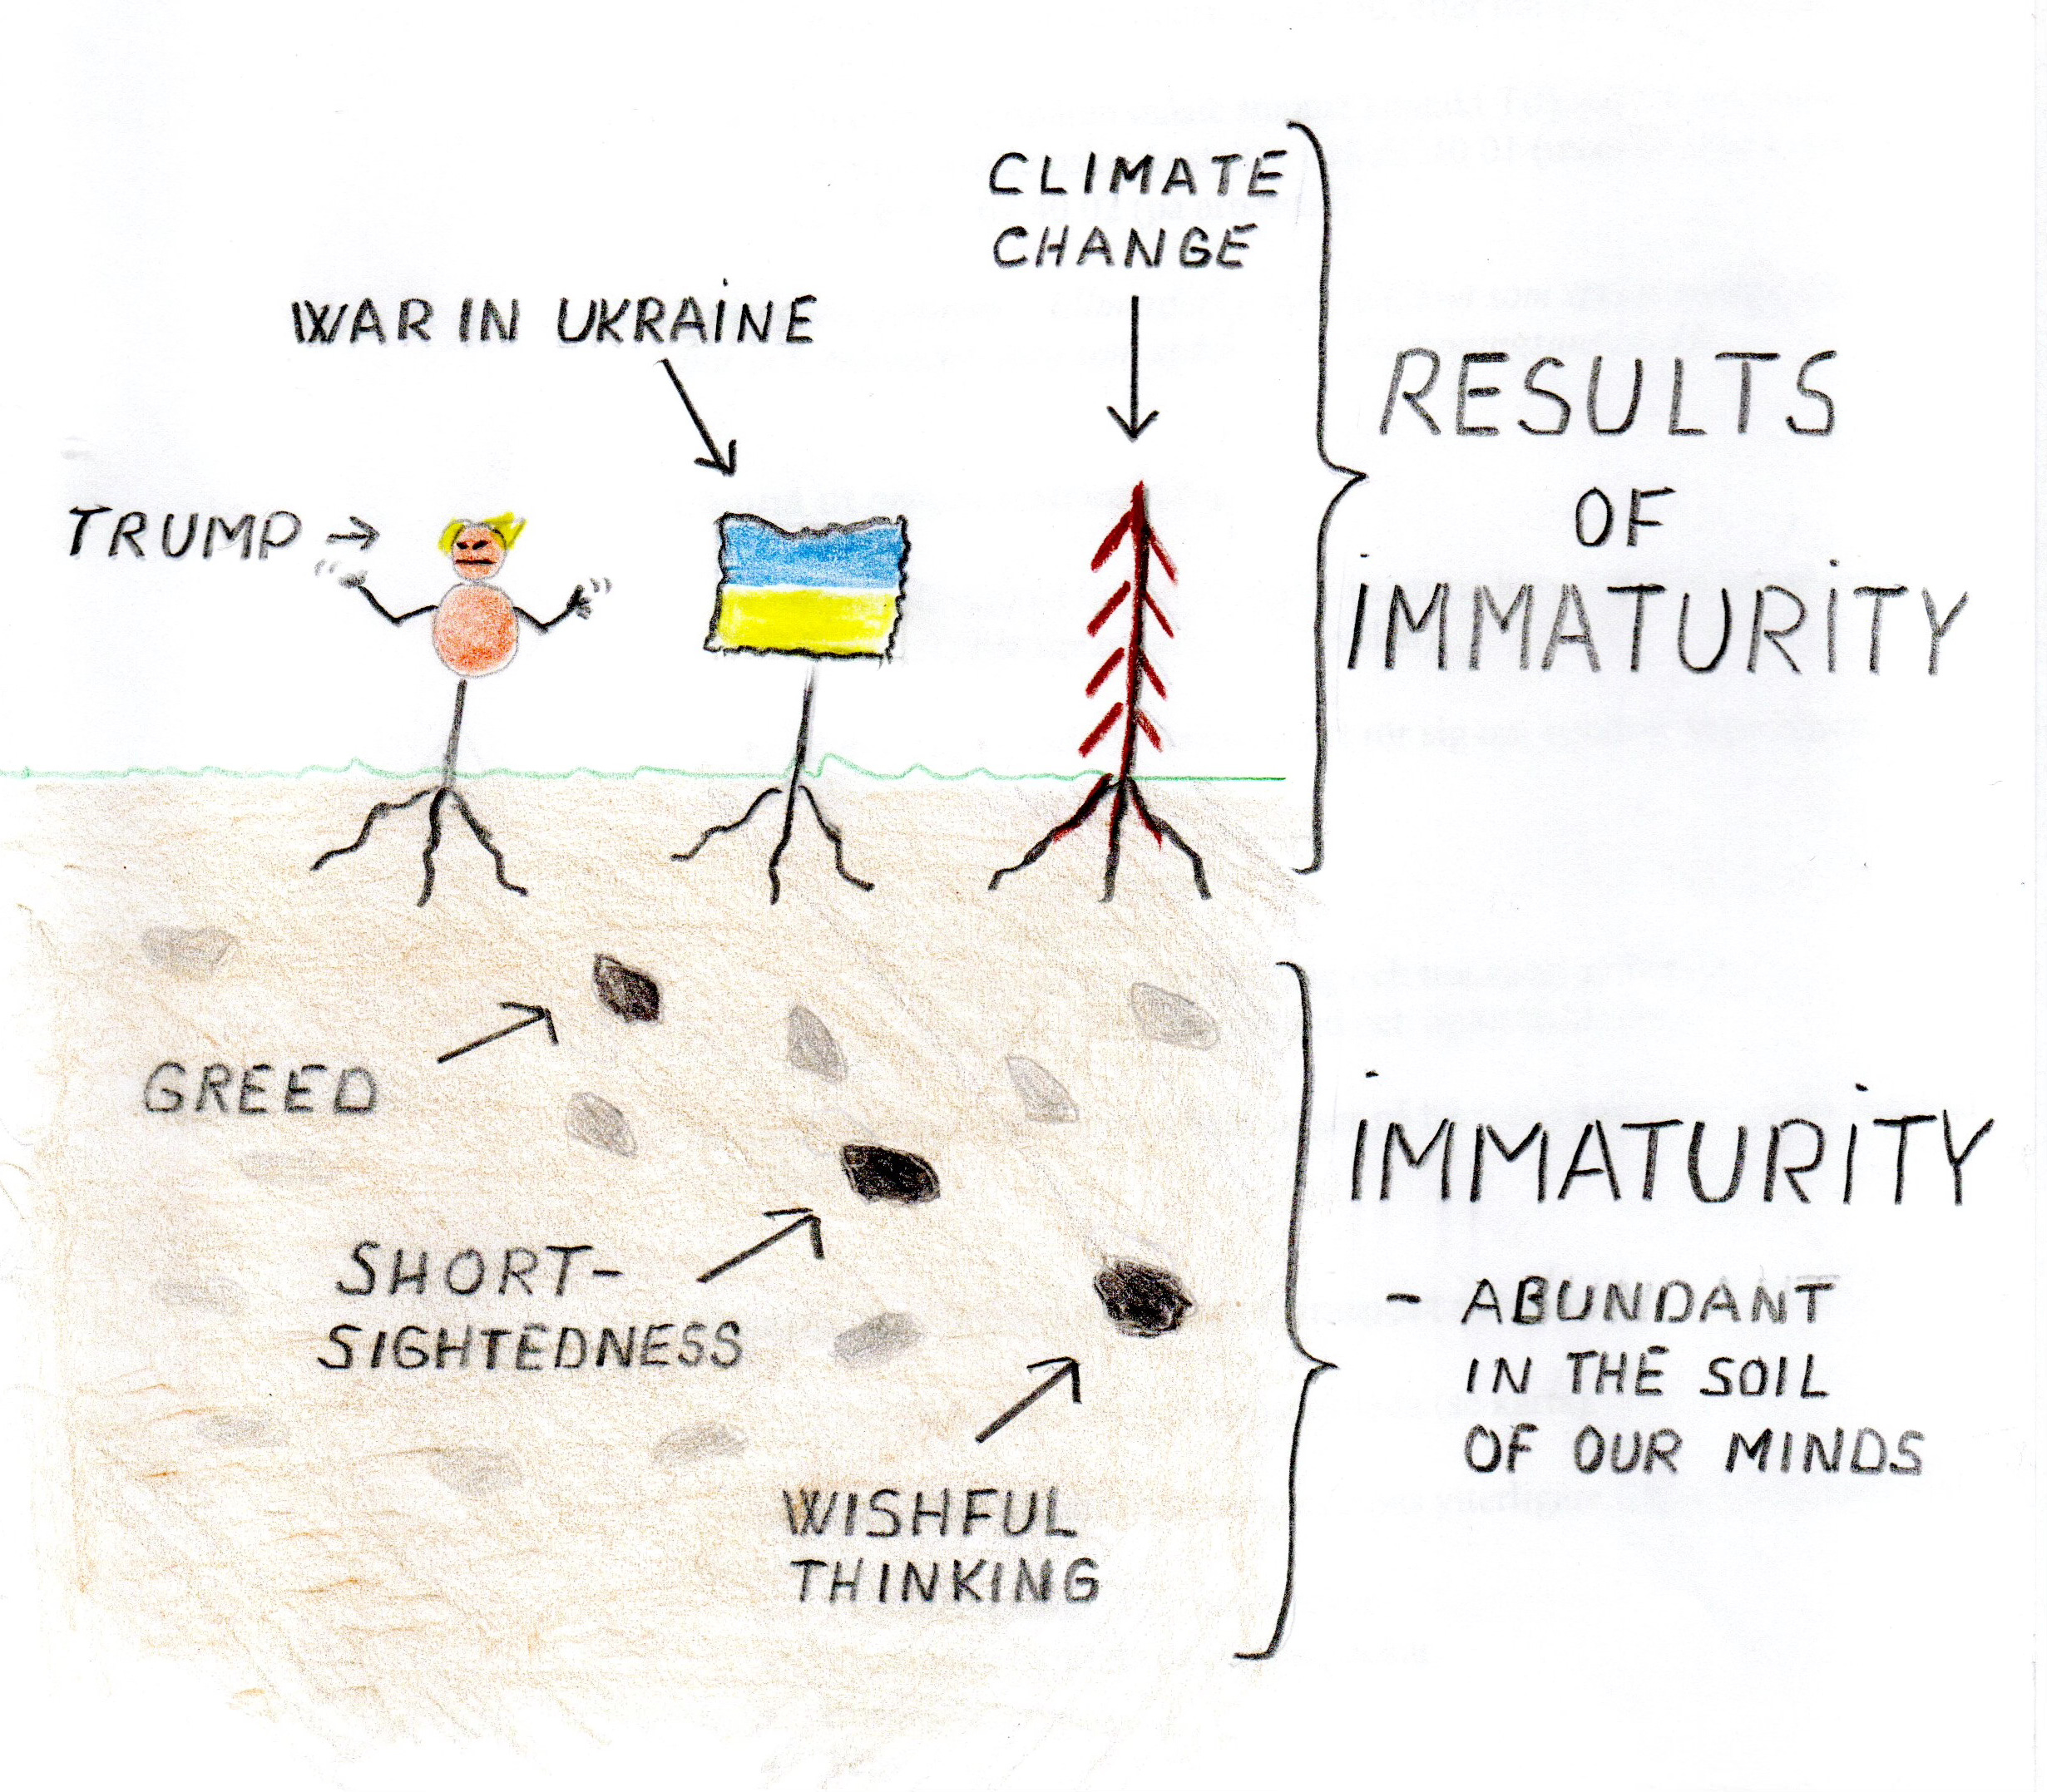 CLIMATE
CHANGE
WAR IN UKRAINE
TRUMP →
RESULTS
OF
IMMATURITY
GREED
SHORT-
SIGHTEDNESS
WISHFUL
THINKING
IMMATURITY
- ABUNDANT
IN THE SOIL
OF OUR MINDS